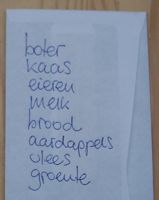 boter
kaas
eieren
melk
brood
aardappels
vlees
groente